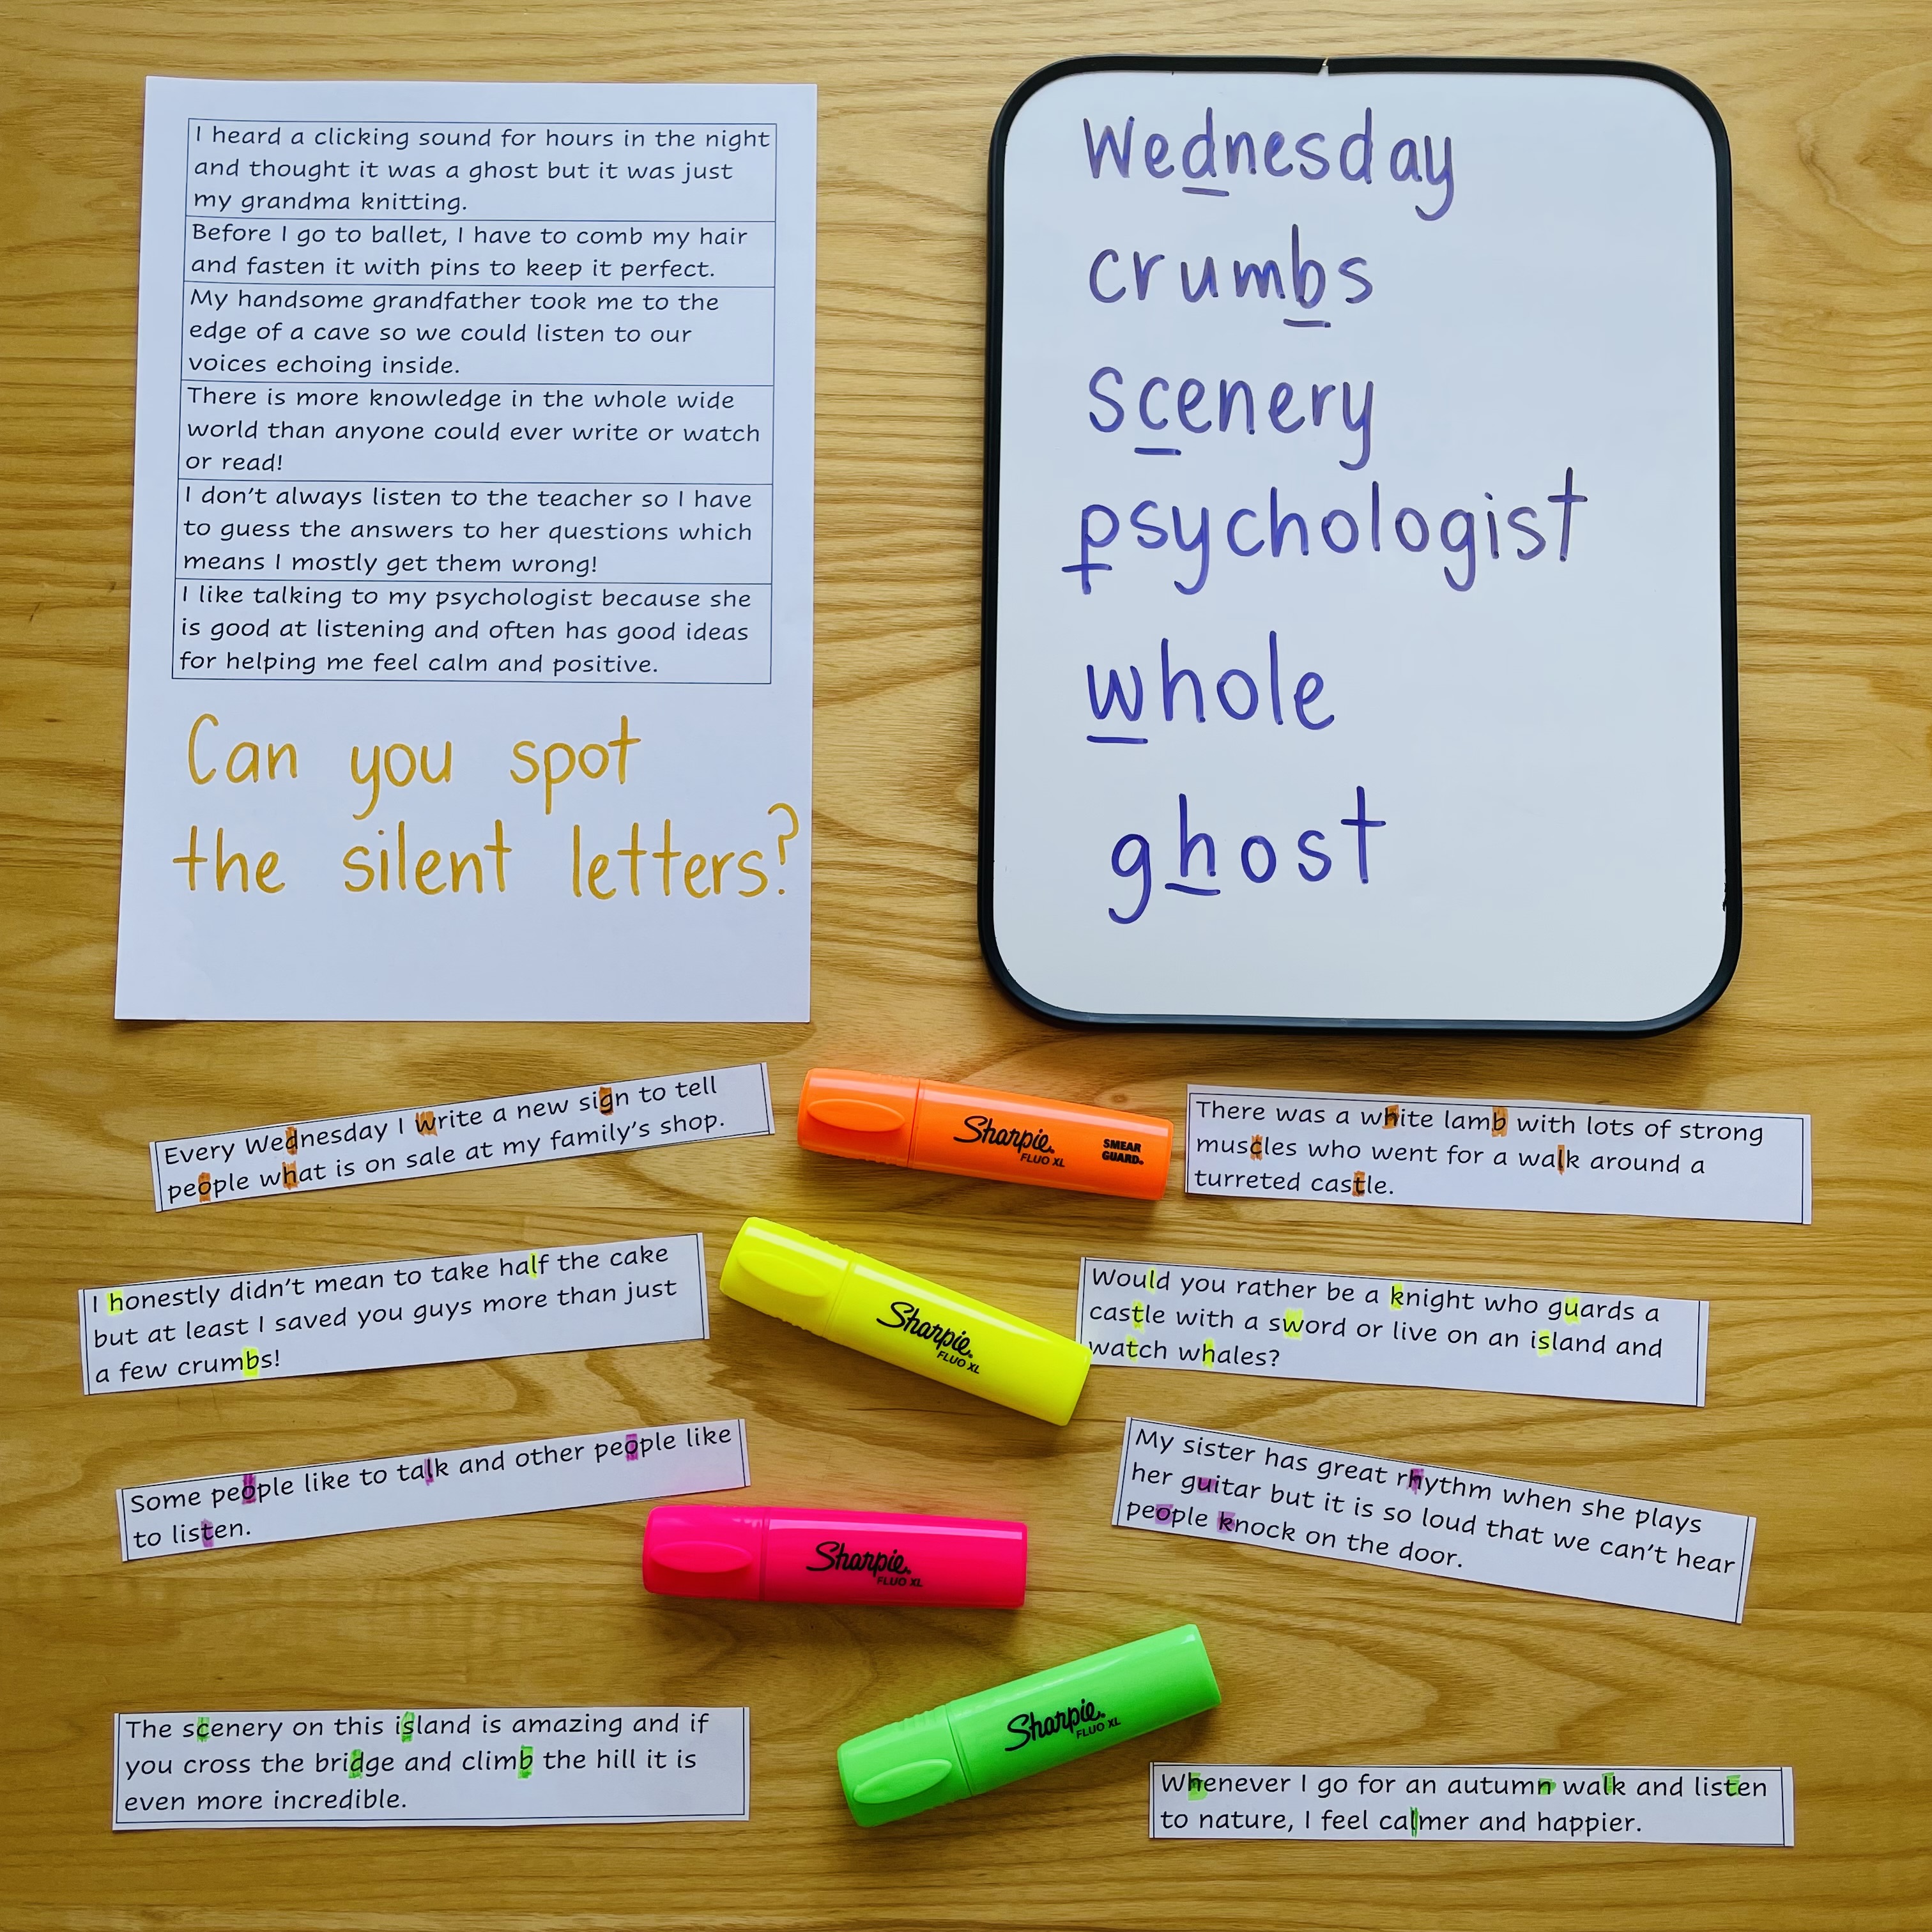 I heard a clicking sound for hours in the night
and thought it was a ghost but it was just
my grandma knitting.
Before I go to ballet, I have to comb my hair
and fasten it with pins to keep it perfect.
My handsome grandfather took me to the
edge of a cave so we could listen to our
voices echoing inside.
There is more knowledge in the whole wide
world than anyone could ever write or watch
or read!
I don't always listen to the teacher so I have
to guess the answers to her questions which
means I mostly get them wrong!
I like talking to my psychologist because she
is good at listening and often has good ideas
for helping me feel calm and positive.
Can you spot
the silent letters?
Wednesday
crumbs
scenery
psychologist
whole
ghost
Every Wednesday I write a new sign to tell
people what is on sale at my family's shop.
Sharpie.
FLUO XL
SMEAR
GUARD.
There was a white lamb with lots of strong
muscles who went for a walk around a
turreted castle.
I honestly didn't mean to take half the cake
but at least I saved you guys more than just
a few crumbs!
Sharpie.
FLUO XL
Would you rather be a knight who guards a
castle with a sword or live on an island and
watch whales?
Some people like to talk and other people like
to listen.
Sharpie.
FLUO XL
My sister has great rhythm when she plays
her guitar but it is so loud that we can't hear
people knock on the door.
The scenery on this island is amazing and if
you cross the bridge and climb the hill it is
even more incredible.
Sharpie.
FLUO XL
Whenever I go for an autumn walk and listen
to nature, I feel calmer and happier.